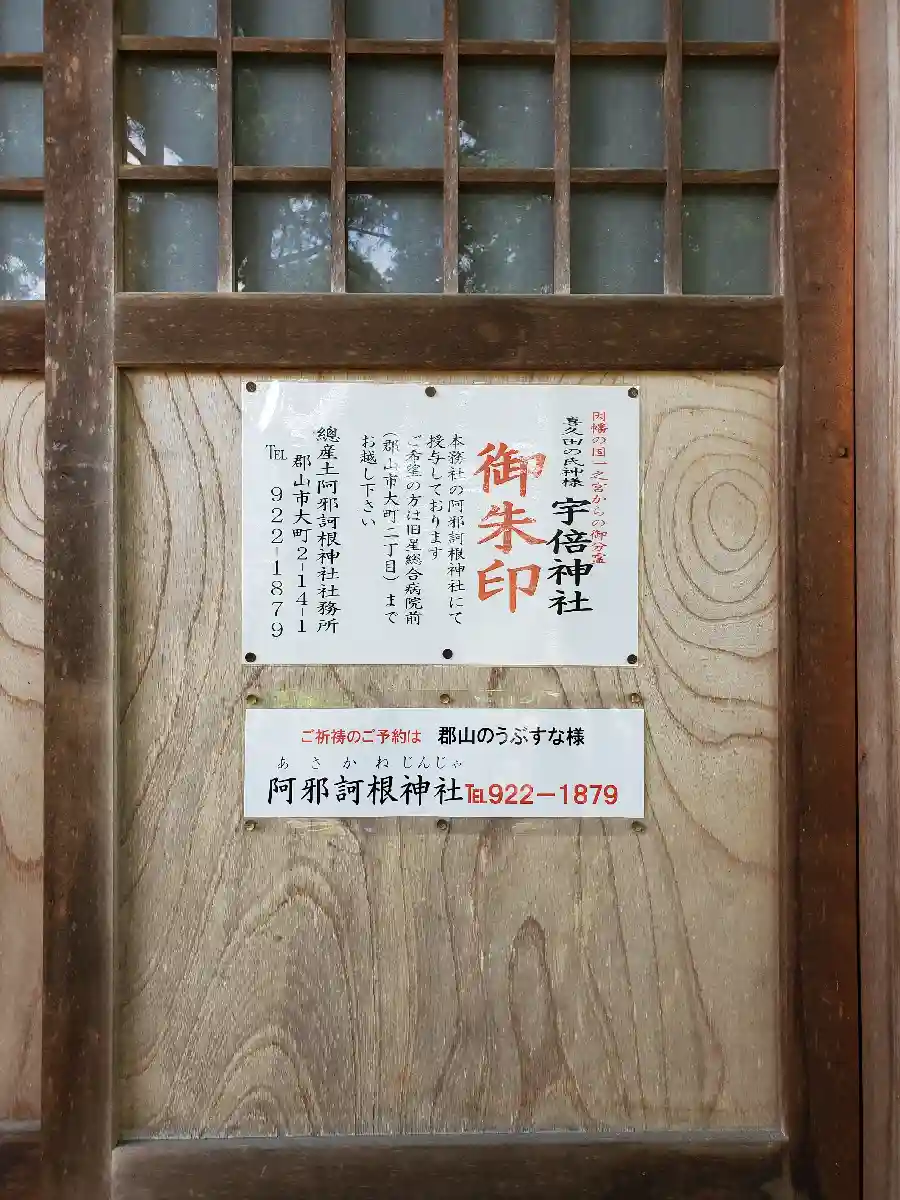 因幡の国一之宮からの御分霊
喜久田の氏神様
宇倍神社
御朱印
本務社の阿邪訶根神社にて
授与しております
ご希望の方は旧星総合病院前
(郡山市大町二丁目)まで
お越し下さい
總産土阿邪訶根神社社務所
郡山市大町2-14-1
℡ 922-1879
ご祈祷のご予約は 郡山のうぶすな様
あさかねじんじゃ
阿邪訶根神社℡922-1879